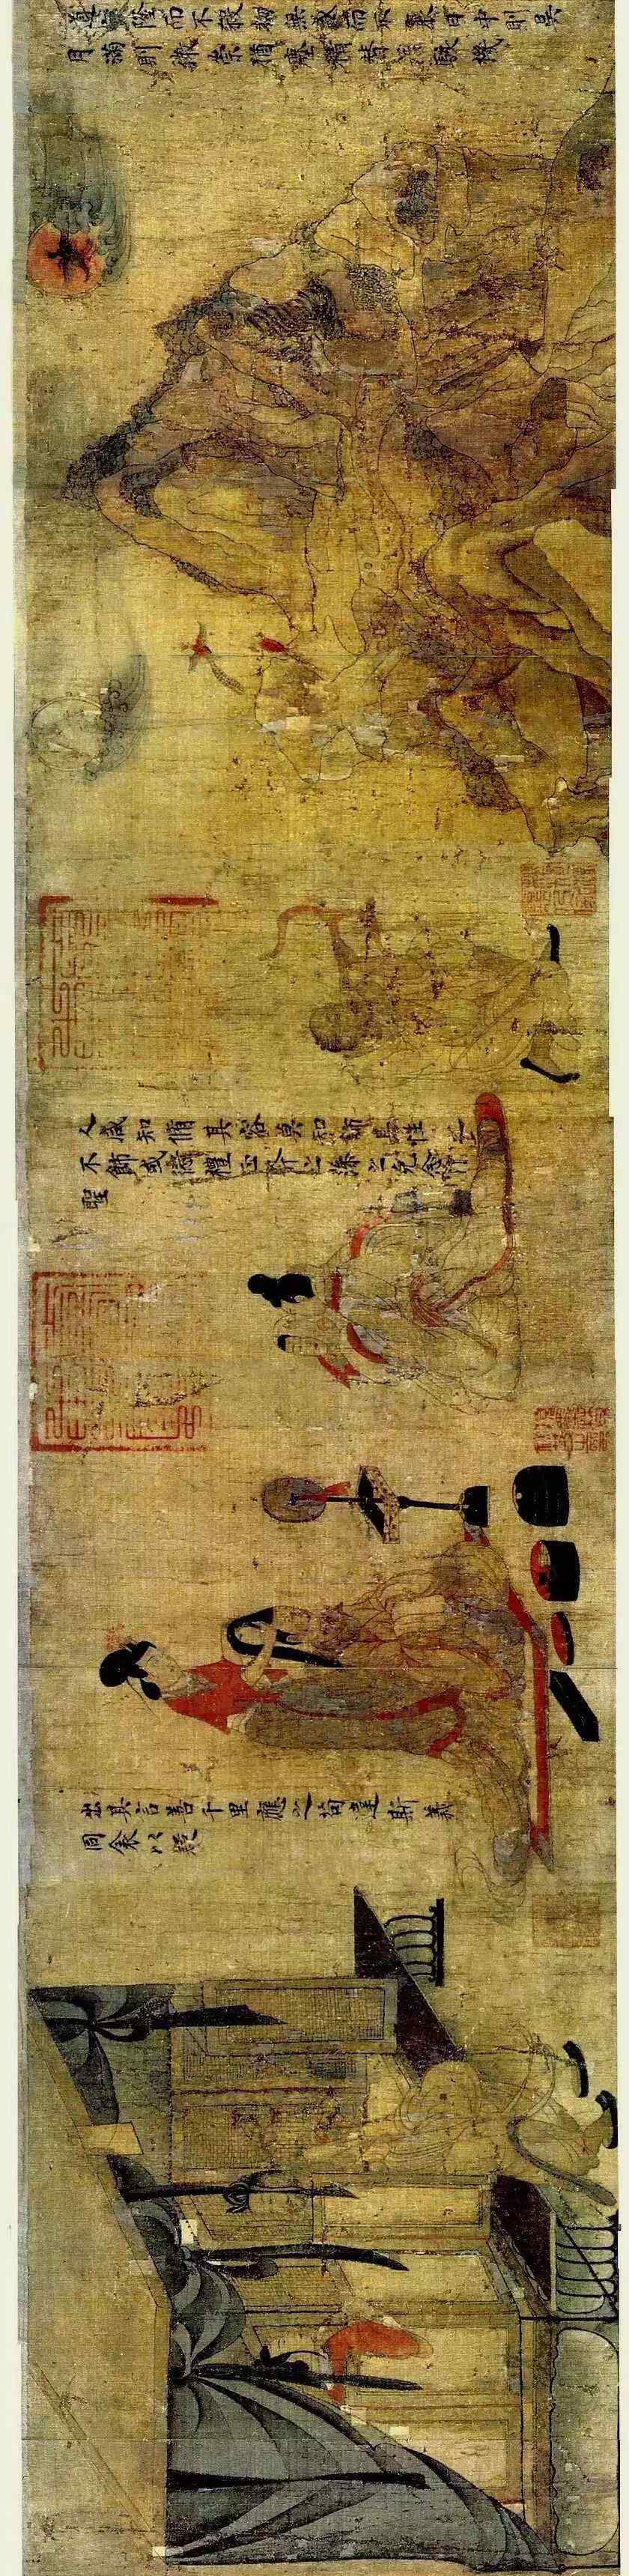 道罔隆而不殺物無盛而不衰日中則昃
月滿則微崇猶塵積替若駭機
人咸知脩其容莫知飾其性之
不飾或愆禮正斧之藻之克念作
聖
出其言善千里應之苟違斯義
同衾以疑